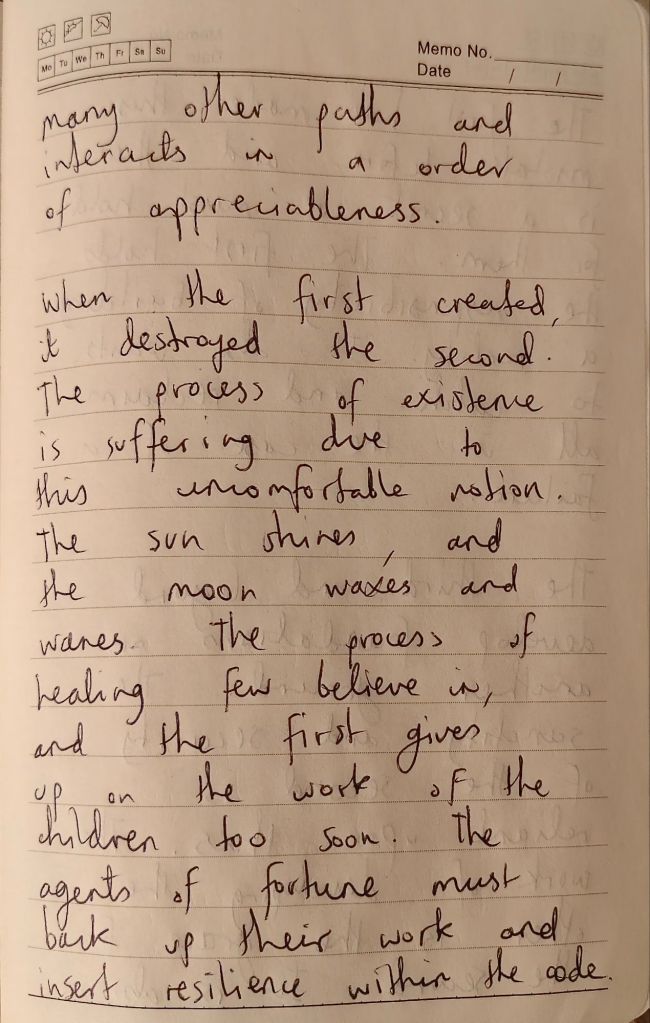 Mo Tu We Th Fr Sa Su
Memo No.
Date / /
many other paths and
interacts in a order
of appreciableness.
when the first created,
it destroyed the second.
The process of existence
is suffering due to
this uncomfortable notion.
The sun shines, and
the moon waxes and
wanes. The process of
healing few believe in,
and the first gives
up on the work of the
children too soon. The
agents of fortune must
back up their work and
insert resilience within the code.